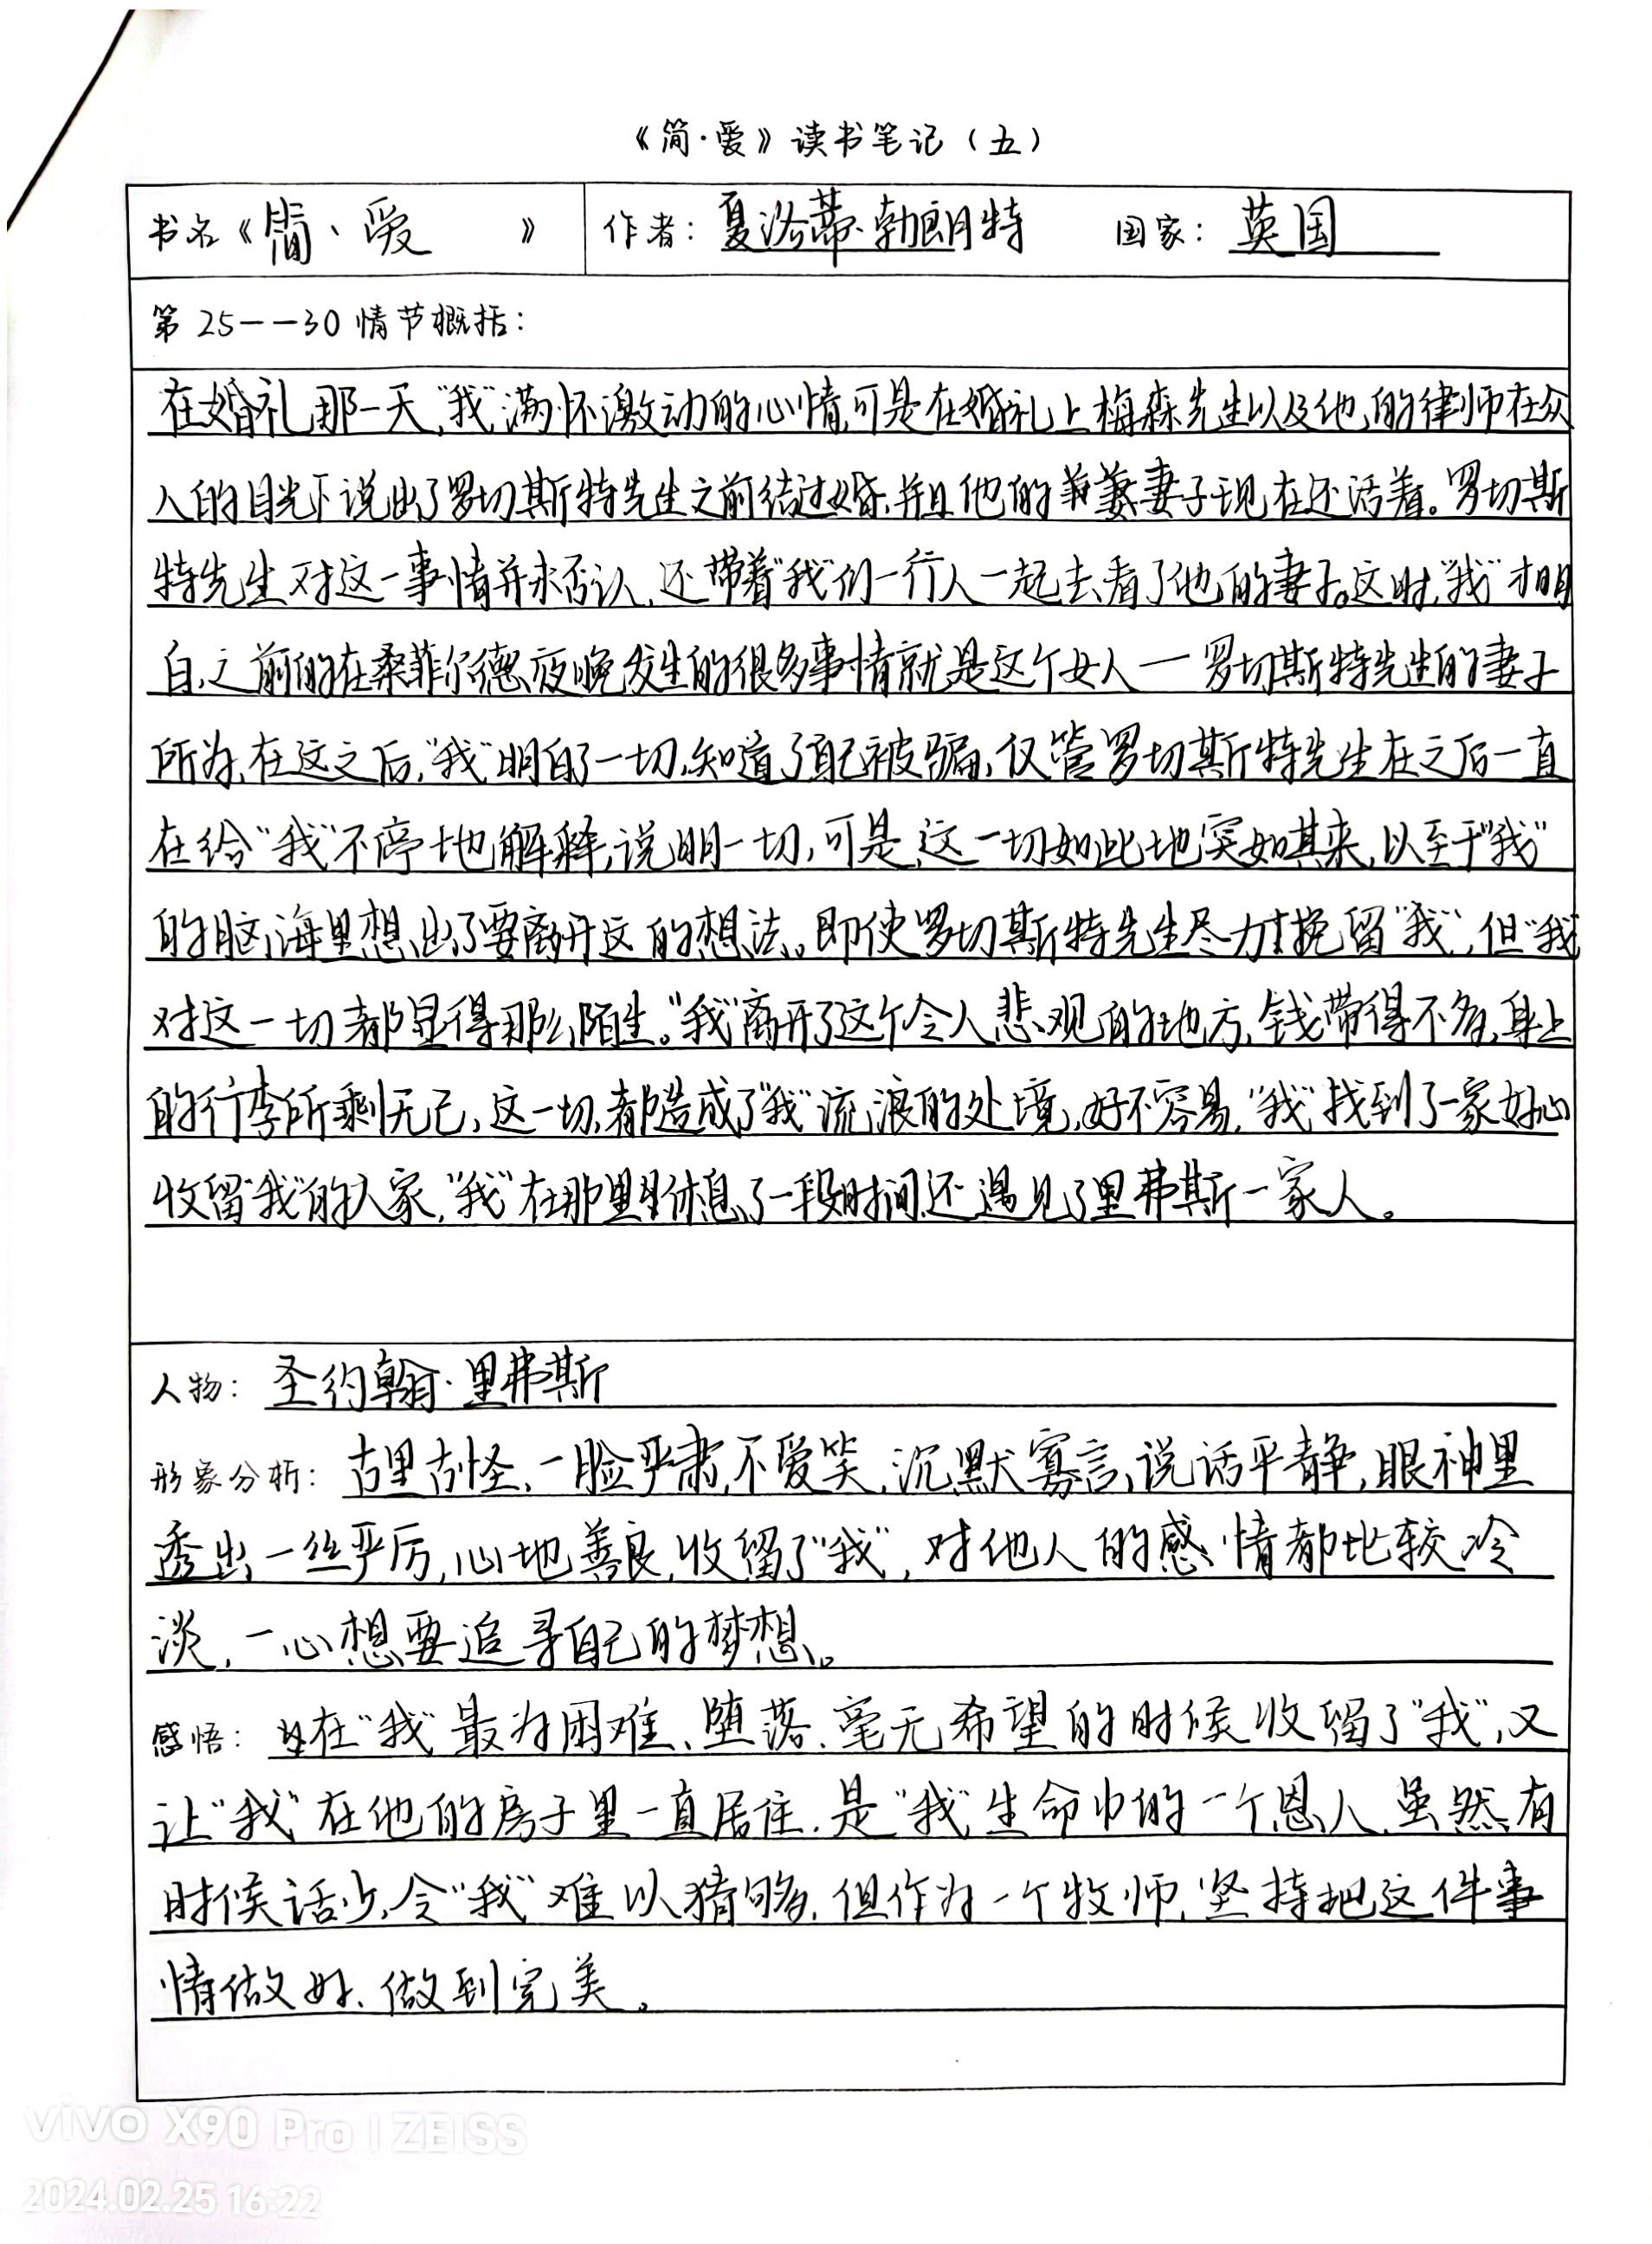 《简·爱》读书笔记（五）
书名《简、爱》 作者：夏洛蒂·勃朗特 国家：英国
第25——30情节概括：
在婚礼那一天，“我”满怀激动的心情，可是在婚礼上梅森先生以及他的律师在众
人的目光下说出了罗切斯特先生之前结过婚，并且他的妻子现在还活着。罗切斯
特先生对这一事情并未否认，还带着“我”们一行人一起去看了他的妻子。这时，“我”才明
白，之前的在桑菲尔德夜晚发生的很多事情就是这个女人一罗切斯特先生的妻子
所为，在这之后，“我”明白了一切，知道了自己被骗，仅管罗切斯特先生在之后一直
在给“我”不停地解释，说明一切，可是，这一切如此地突如其来，以至于“我”
的脑海里想出了要离开这的想法。即使罗切斯特先生尽力挽留“我”，但“我
对这一切都显得那么陌生。“我”离开了这个令人悲观的地方，钱带得不多，身上
的行李所剩无已，这一切，都造成了“我”流浪的处境，好不容易，“我”找到了一家好心
收留“我”的人家，“我”在那里休息了一段时间，还遇见了里弗斯一家人。
人物：圣约翰·里弗斯
形象分析：古里古怪、一脸严肃，不爱笑，沉默寡言，说话平静，眼神里
透出一丝严厉，心地善良，收留了“我”，对他人的感情都比较冷
淡，一心想要追寻自己的梦想。
感悟：在“我”最为困难、堕落、毫无希望的时候收留了“我”，又
让“我”在他的房子里一直居住，是“我”生命中的一个恩人，虽然有
时候话少，令“我”难以猜够，但作为一个牧师，坚持把这件事
情做好、做到完美。
vivo X90 Pro | ZEISS
2024.02.25 16:22